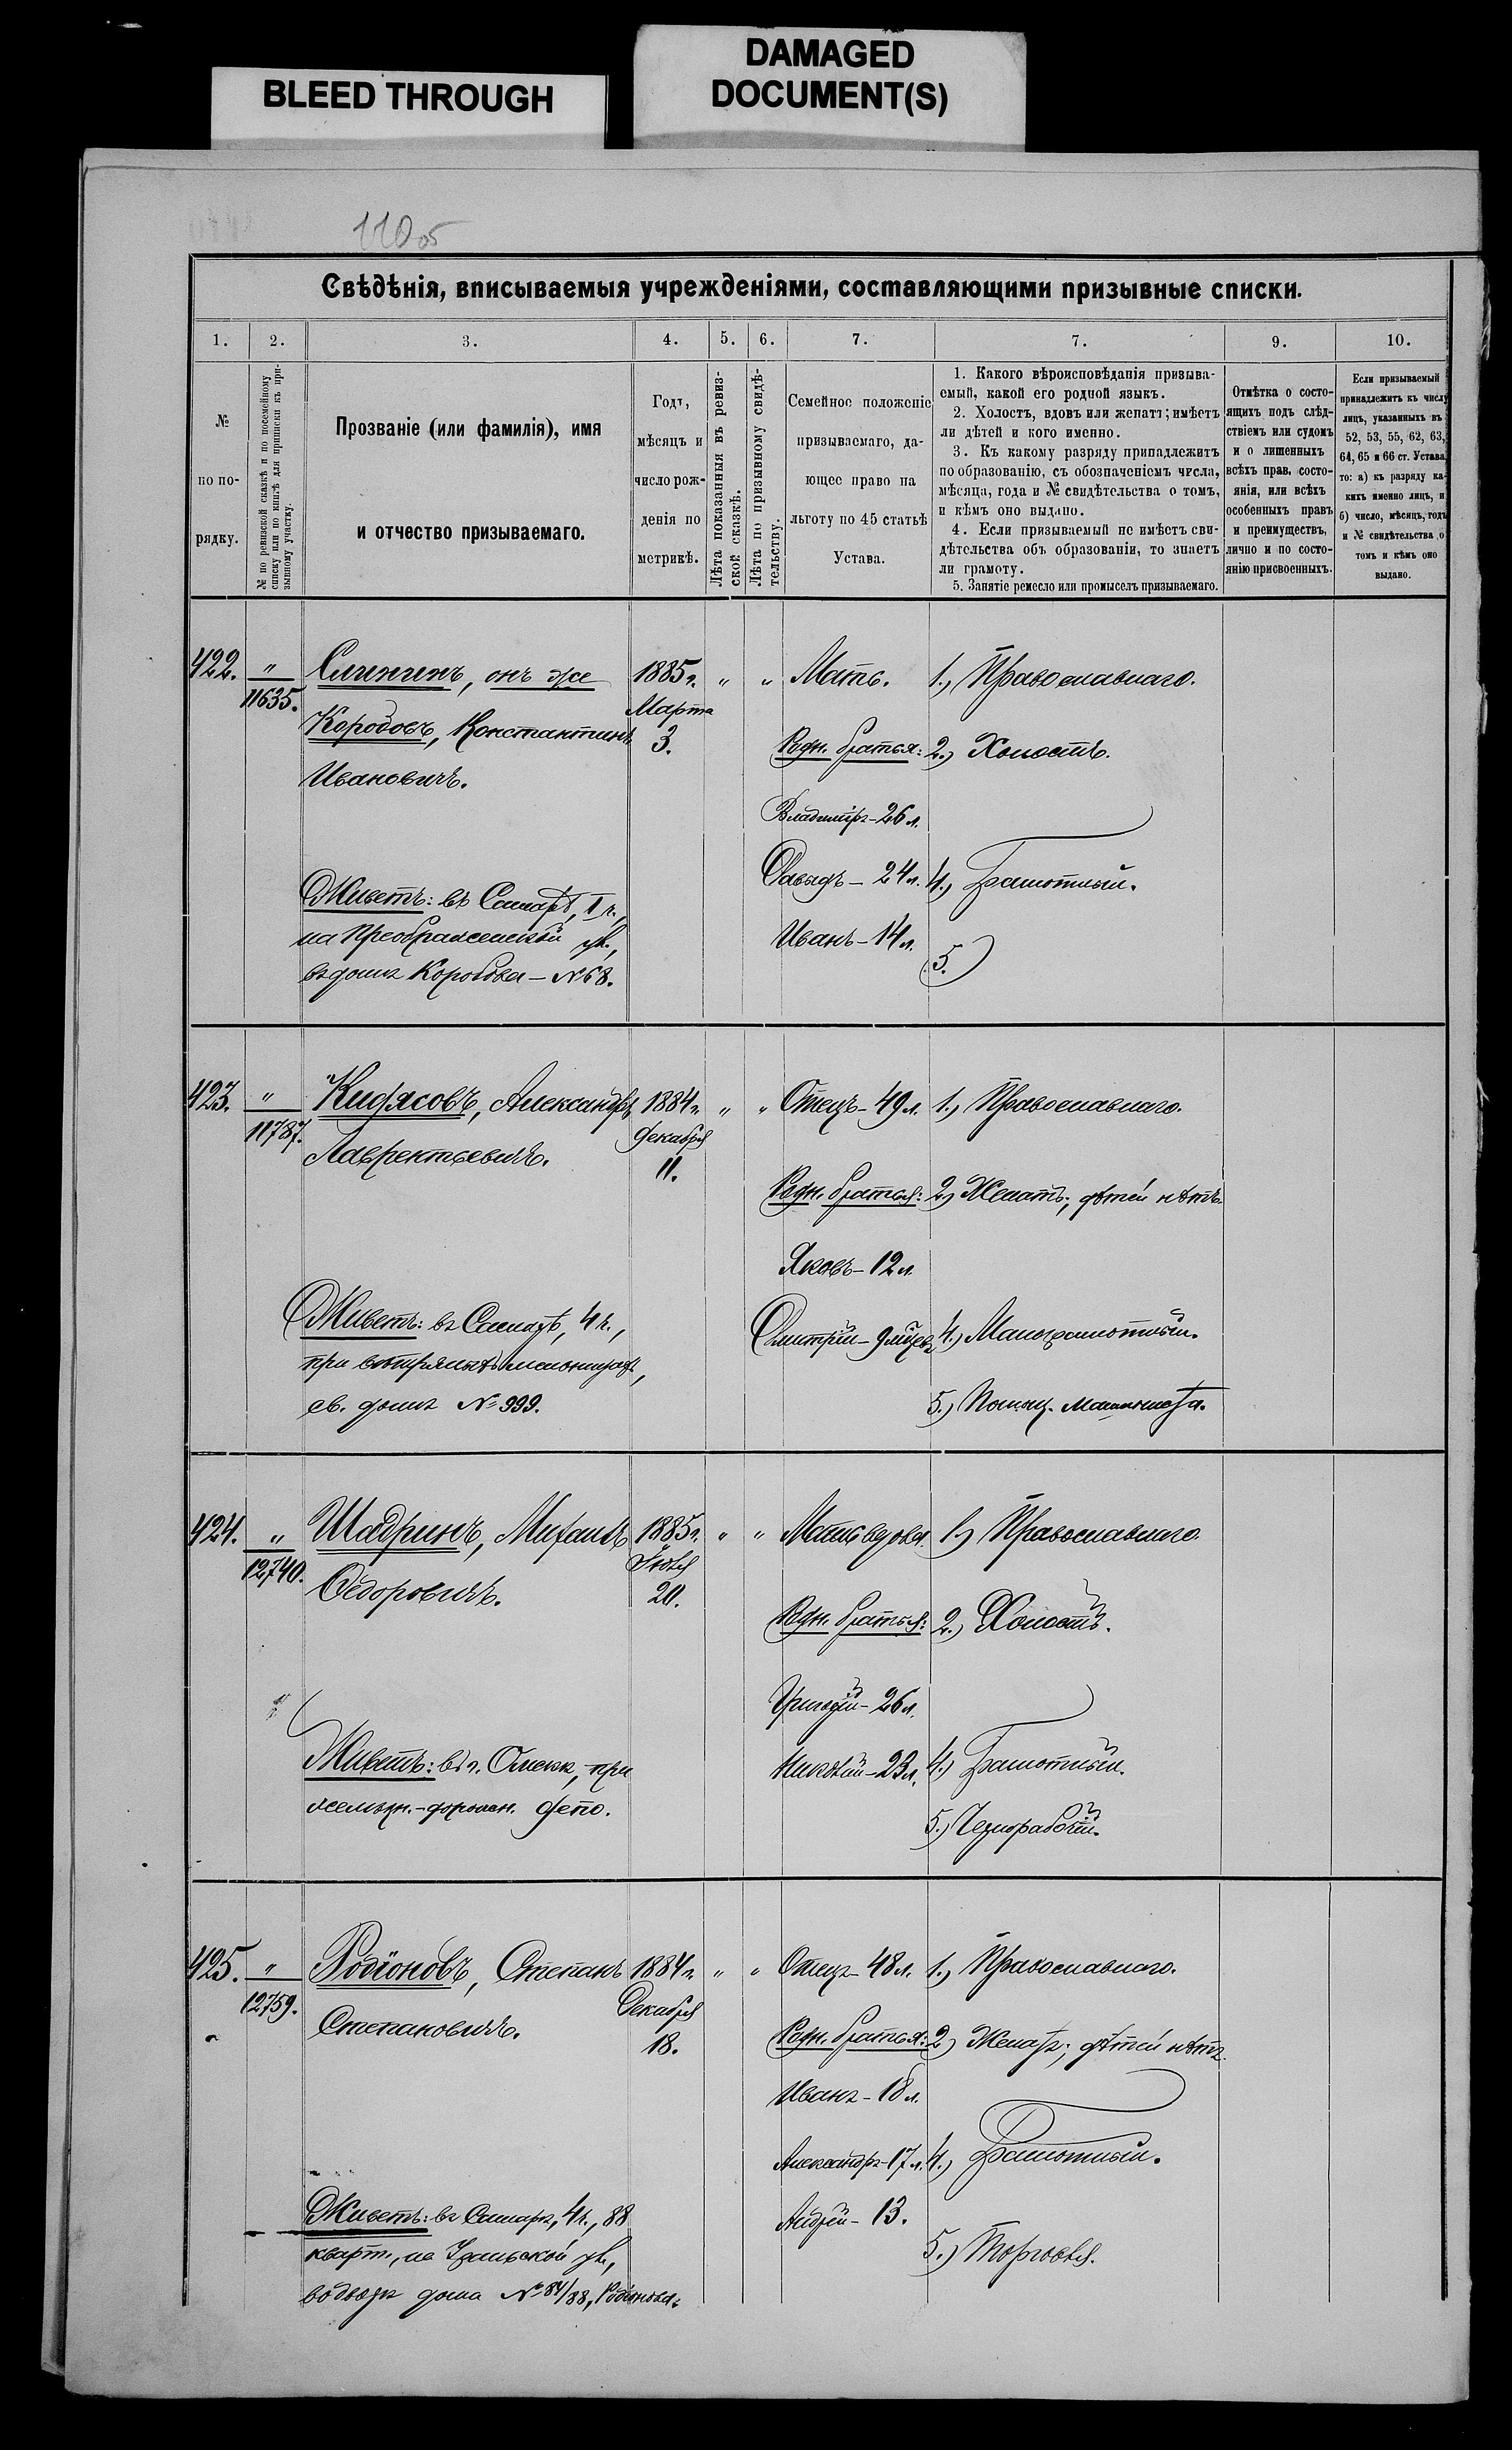 BLEED THROUGH
DAMAGED
DOCUMENT(S)
110 05
Свѣдѣнія, вписываемыя учрежденіями, составляющими призывные списки.
1. 2. 3. 4. 5. 6. 7. 7. 9. 10.
№ по по-рядку.
№ по ревизской сказкѣ и по посемейному списку или по книгѣ для приписки къ призывному участку.
Прозваніе (или фамилія), имя
и отчество призываемаго.
Годъ,
мѣсяцъ и
число рож-
денія по
метрикѣ.
Лѣта показанныя въ ревиз-
ской сказкѣ.
Лѣта по призывному свидѣ-
тельству.
Семейное положеніе
призываемаго, да-
ющее право на
льготу по 45 статьѣ
Устава.
1. Какого вѣроисповѣданія призыва-
емый, какой его родной языкъ.
2. Холостъ, вдовъ или женатъ; имѣетъ
ли дѣтей и кого именно.
3. Къ какому разряду принадлежитъ
по образованію, съ обозначеніемъ числа,
мѣсяца, года и № свидѣтельства о томъ,
и кѣмъ оно выдано.
4. Если призываемый не имѣетъ сви-
дѣтельства объ образованіи, то знаетъ
ли грамоту.
5. Занятіе ремесло или промыселъ призываемаго.
Отмѣтка о состо-
ящихъ подъ слѣд-
ствіемъ или судомъ
и о лишенныхъ
всѣхъ прав. состо-
янія, или всѣхъ
особенныхъ правъ
и преимуществъ,
лично и по состо-
янію присвоенныхъ.
Если призываемый
принадлежитъ къ числу
лицъ, указанныхъ въ
52, 53, 55, 62, 63,
64, 65 и 66 ст. Устава,
то: а) къ разряду ка-
кихъ именно лицъ, и
б) число, мѣсяцъ, годъ
и № свидѣтельства о
томъ и кѣмъ оно
выдано.
422. " 11635. онъ же
Константинъ
Ивановичъ.
Живетъ: въ Самарѣ, II ч.,
на Преображенской ул.,
въ домѣ Коробова – №68.
1885 г.
Марта
3.
" "
Мать.
Родн. братья:
Владиміръ – 26 л.
Давыдъ – 24 л.
Иванъ – 14 л.
1.) Православнаго.
2.) Холостъ.
4.) Грамотный.
5.)
423. " 11787. Кидясовъ, Александръ
Лаврентьевичъ.
Живетъ: въ Самарѣ, 4 ч.,
при вѣтряныхъ мельницахъ,
св. домѣ № 999.
1884 г.
Декабря
11.
" "
Отецъ – 49 л.
Родн. братья:
Яковъ – 12 л.
Дмитрій – 9
1.) Православнаго.
2.) Женатъ; дѣтей нѣтъ.
4.) Малограмотный.
5.) Помощ. машиниста.
424. " 12740. Шадринъ, Михаилъ
Ѳедоровичъ.
Живетъ: въ г. Омскѣ, при
желѣзн.-дорожн. депо.
1885 г.
Іюля
20.
" "
Мать вдова.
Родн. братья:
Григорій – 26 л.
Николай – 23 л.
1.) Православнаго.
2.) Холостъ.
4.) Грамотный.
5.) Чернорабочій.
425. " 12759. Родіоновъ, Степанъ
Степановичъ.
Живетъ: въ Самарѣ, 4 ч., 88
кварт., на Уральской ул.,
во дворѣ дома № 84/88, Родіонова.
1884 г.
Декабря
18.
" "
Отецъ – 48 л.
Родн. братья:
Иванъ – 18 л.
Александръ – 17 л.
Андрей – 13.
1.) Православнаго.
2.) Женатъ; дѣтей нѣтъ.
4.) Грамотный.
5.) Торговля.